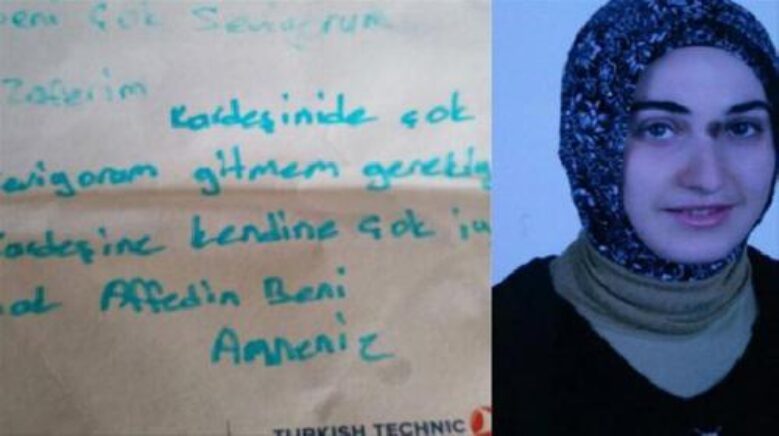 eni çok seviyorum
Zaferim
Kardeşinide çok
seviyoram gitmem gerekiy
Kardeşine kendine çok iy
Affedin Beni
Anneniz
TURKISH TECHNIC